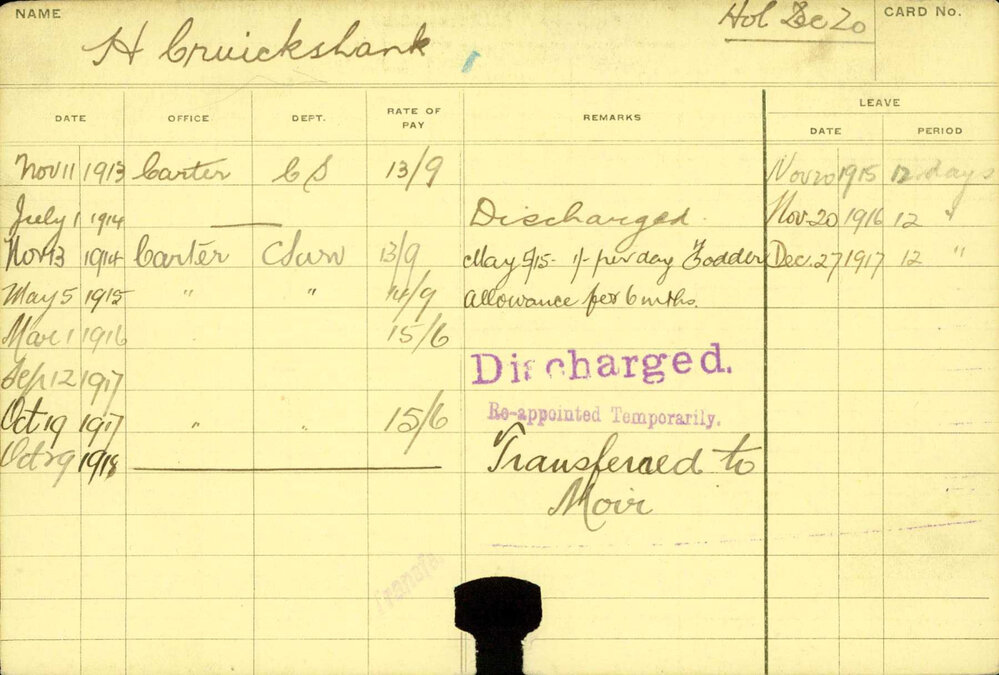 NAME Hol Dec 20 CARD No.
H Cruickshank
LEAVE
DATE OFFICE DEPT. RATE OF PAY REMARKS DATE PERIOD
Nov 11 1913 Carter C S 13/9 Nov 20 1915 12 days
July 1 1914 Discharged. Nov. 20 1916 12 "
Nov 13 1914 Carter CSurv 13/9 May 5/15- 1/- per day Fodder Dec. 27 1917 12 "
May 5 1915 " " 14/9 allowance per 6 mths.
Mar 1 1916 15/6
Sep 12 1917 Discharged.
Oct 19 1917 " " 15/6 Re-appointed Temporarily.
Oct 29 1918 Transferred to
Moir